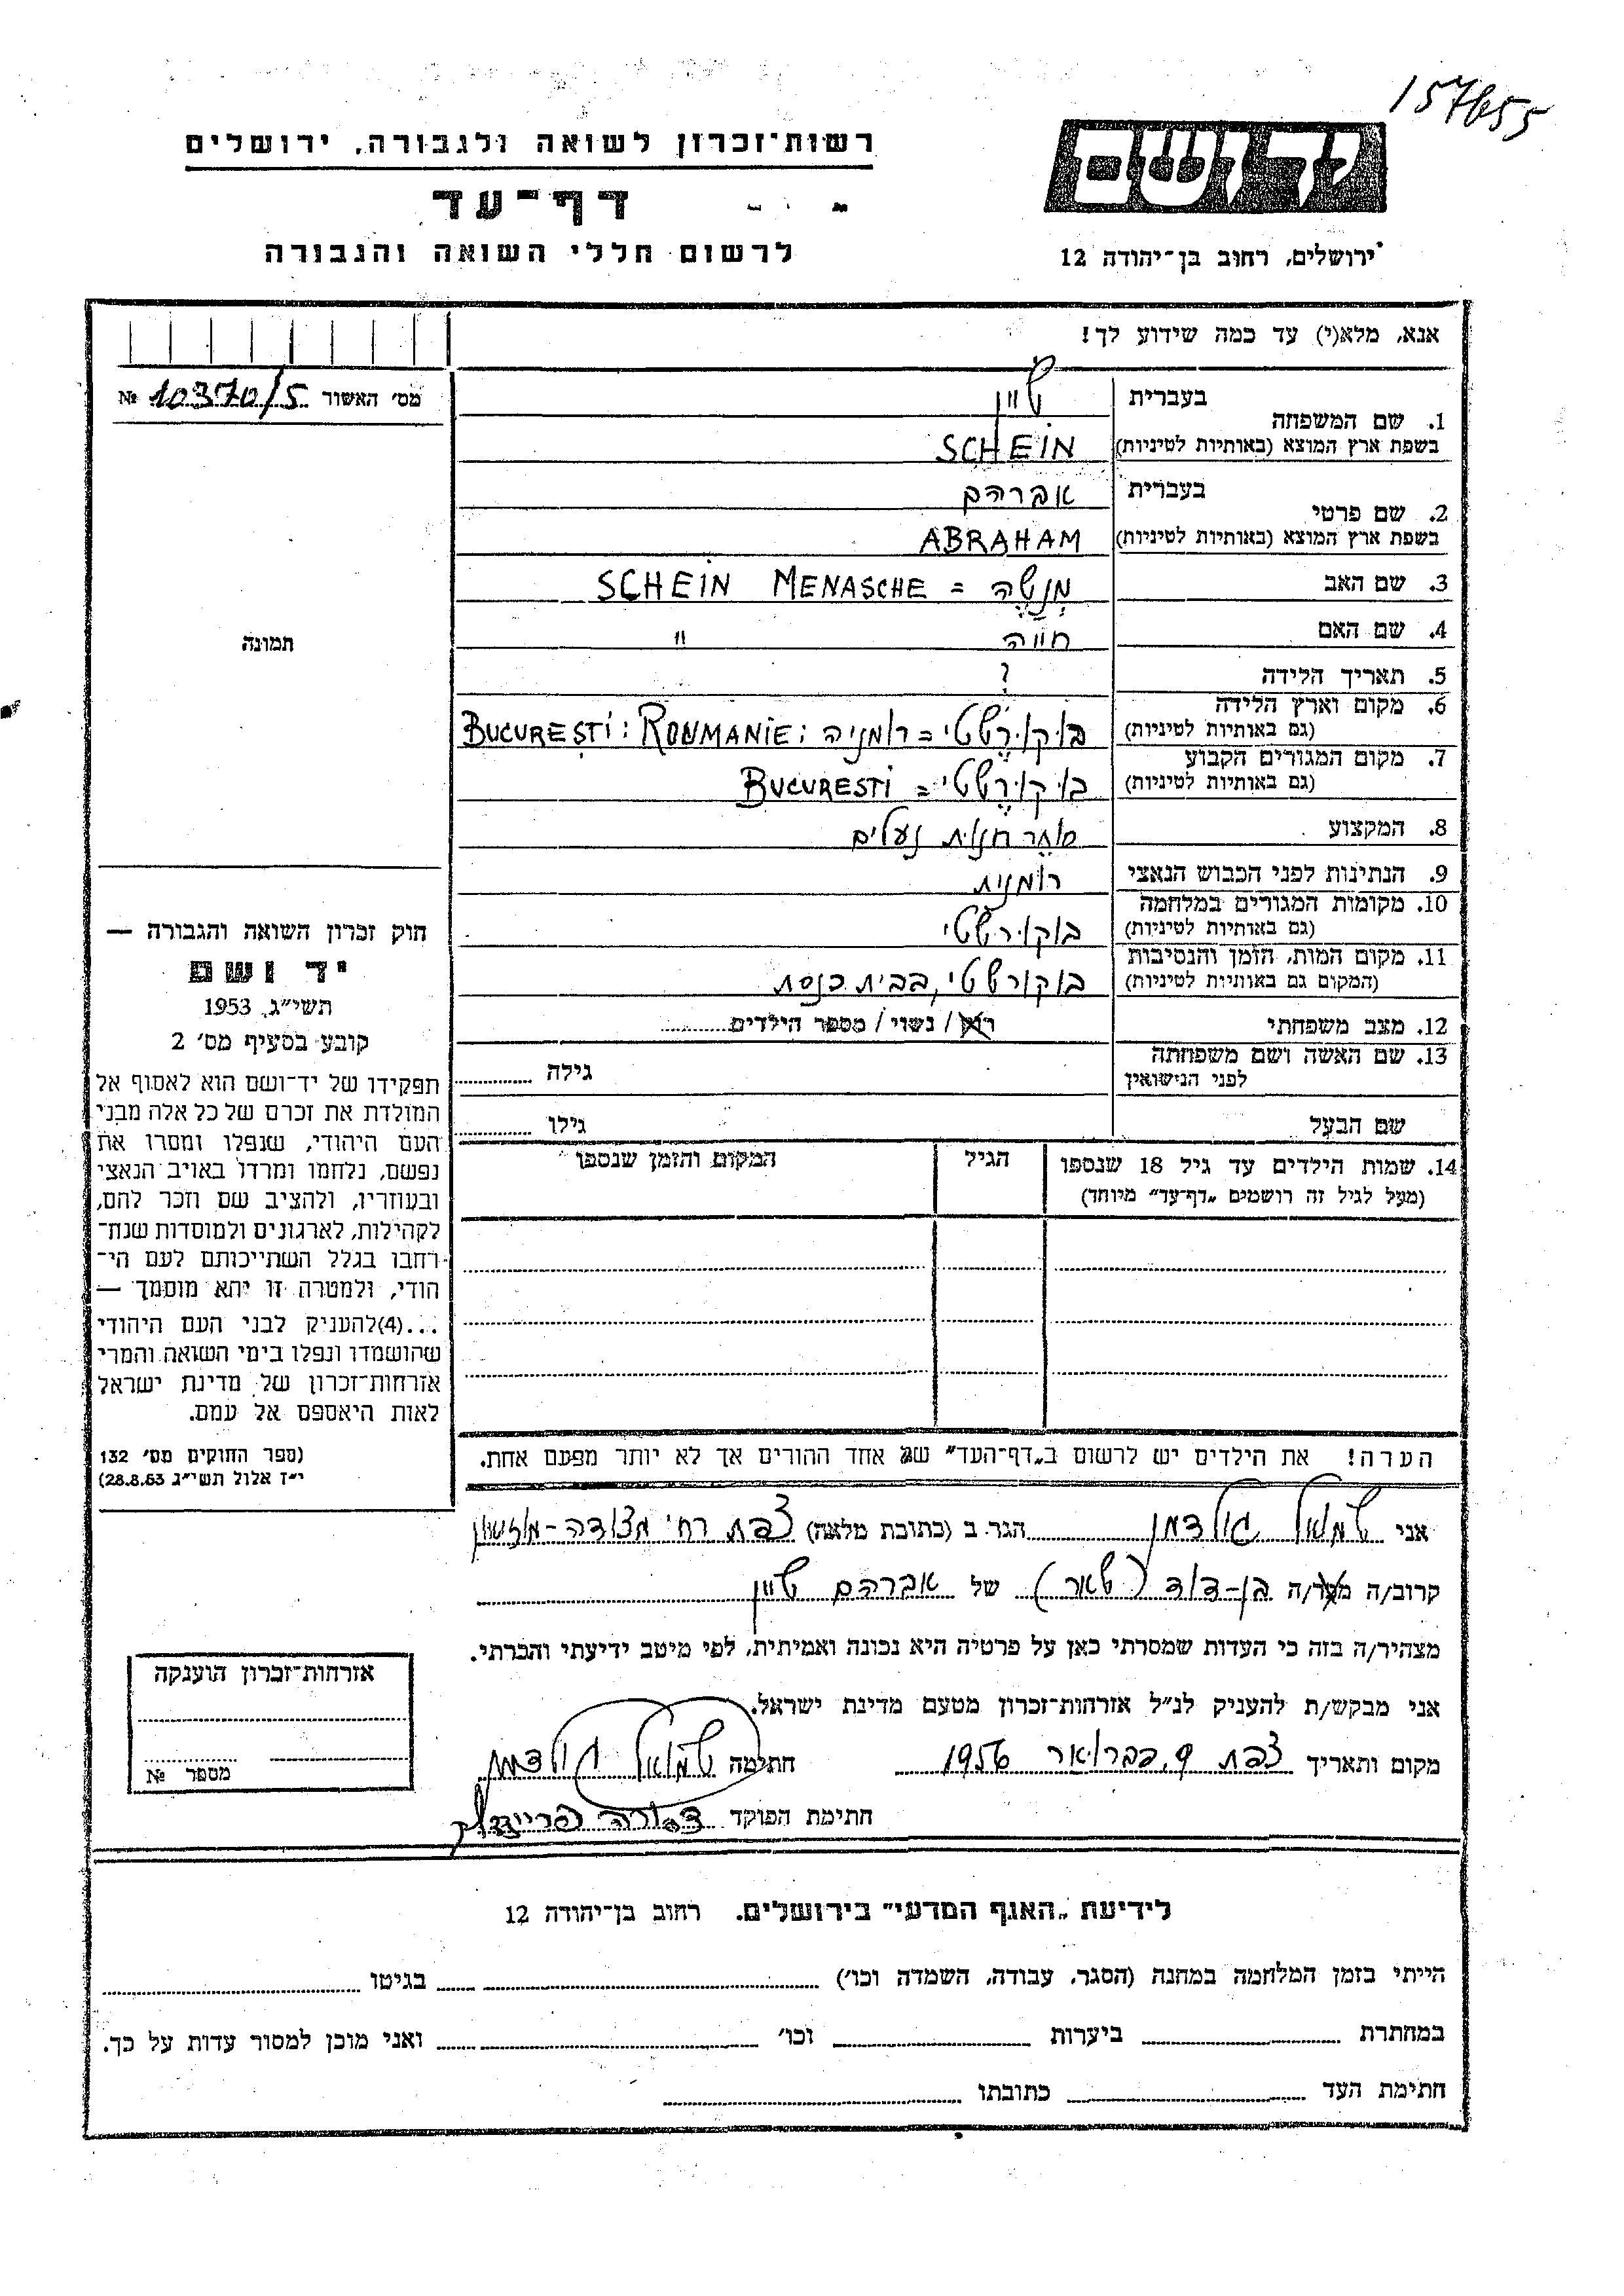 157655
ידושם
ירושלים, רחוב בן־יהודה 12
רשות־זכרון לשואה ולגבורה, ירושלים
דף־עד
לרשום חללי השואה והגבורה
אנא, מלא(י) עד כמה שידוע לך!
מס' האשור 10370/5 №
תמונה
1. שם המשפחה
בעברית שיין
בשפת ארץ המוצא (באותיות לטיניות) SCHEIN
2. שם פרטי
בעברית אברהם
בשפת ארץ המוצא (באותיות לטיניות) ABRAHAM
3. שם האב מנשה = SCHEIN MENASCHE
4. שם האם חווה "
5. תאריך הלידה ?
6. מקום וארץ הלידה
(גם באותיות לטיניות) בוקורשטי = רומניה: BUCUREȘTI: ROUMANIE
7. מקום המגורים הקבוע
(גם באותיות לטיניות) בוקורשטי = BUCURESTI
8. המקצוע סוחר חנות נעלים
9. הנתינות לפני הכבוש הנאצי רומנית
10. מקומות המגורים במלחמה
(גם באותיות לטיניות) בוקורשטי
11. מקום המות, הזמן והנסיבות
(המקום גם באותיות לטיניות) בוקורשטי, בבית כנסת
12. מצב משפחתי רווק / נשוי / מספר הילדים
13. שם האשה ושם משפחתה
לפני הנישואין גילה
שם הבעל גילו
14. שמות הילדים עד גיל 18 שנספו
(מעל לגיל זה רושמים „דף־עד" מיוחד)
הגיל
המקום והזמן שנספו
חוק זכרון השואה והגבורה —
יד ושם
תשי"ג, 1953
קובע בסעיף מס' 2
תפקידו של יד־ושם הוא לאסוף אל
המולדת את זכרם של כל אלה מבני
העם היהודי, שנפלו ומסרו את
נפשם, נלחמו ומרדו באויב הנאצי
ובעוזריו, ולהציב שם וזכר להם,
לקהילות, לארגונים ולמוסדות שנח־
רחבו בגלל השתייכותם לעם הי־
הודי, ולמטרה זו יהא מוסמך —
...(4) להעניק לבני העם היהודי
שהושמדו ונפלו בימי השואה והמרי
אזרחות־זכרון של מדינת ישראל
לאות היאספם אל עמם.
(ספר החוקים מס' 132
י"ז אלול תשי"ג 28.8.53)
הערה! את הילדים יש לרשום ב„דף־העד" של אחד ההורים אך לא יותר מפעם אחת.
אני שמואל גולדמן הגר ב (כתובת מלאה) צפת רח' מצודה
קרוב/ה מכר/ה בן-דוד (שאר) של אברהם שיין
מצהיר/ה בזה כי העדות שמסרתי כאן על פרטיה היא נכונה ואמיתית, לפי מיטב ידיעתי והכרתי.
אני מבקש/ת להעניק לנ"ל אזרחות־זכרון מטעם מדינת ישראל.
מקום ותאריך צפת 9, פברואר 1956 חתימה שמואל גולדמן
חתימת הפוקד
אזרחות־זכרון הוענקה
מספר №
לידיעת „האגף המדעי" בירושלים. רחוב בן־יהודה 12
הייתי בזמן המלחמה במחנה (הסגר, עבודה, השמדה וכו') בגיטו
במחתרת ביערות וכו' ואני מוכן למסור עדות על כך.
חתימת העד כתובתו